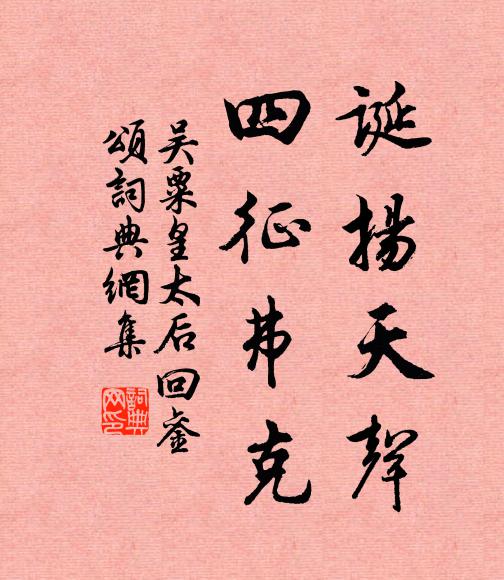 誕揚天聲
四征弗克
吴粟皇太后回鑾
頌詞典網集
詞典
网印